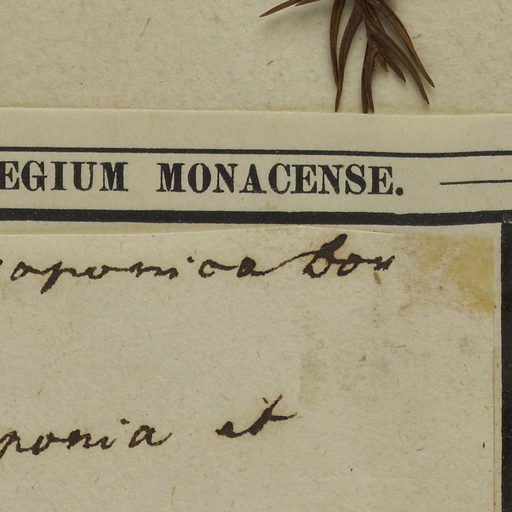 EGIUM MONACENSE.
aponica Don
ponia et